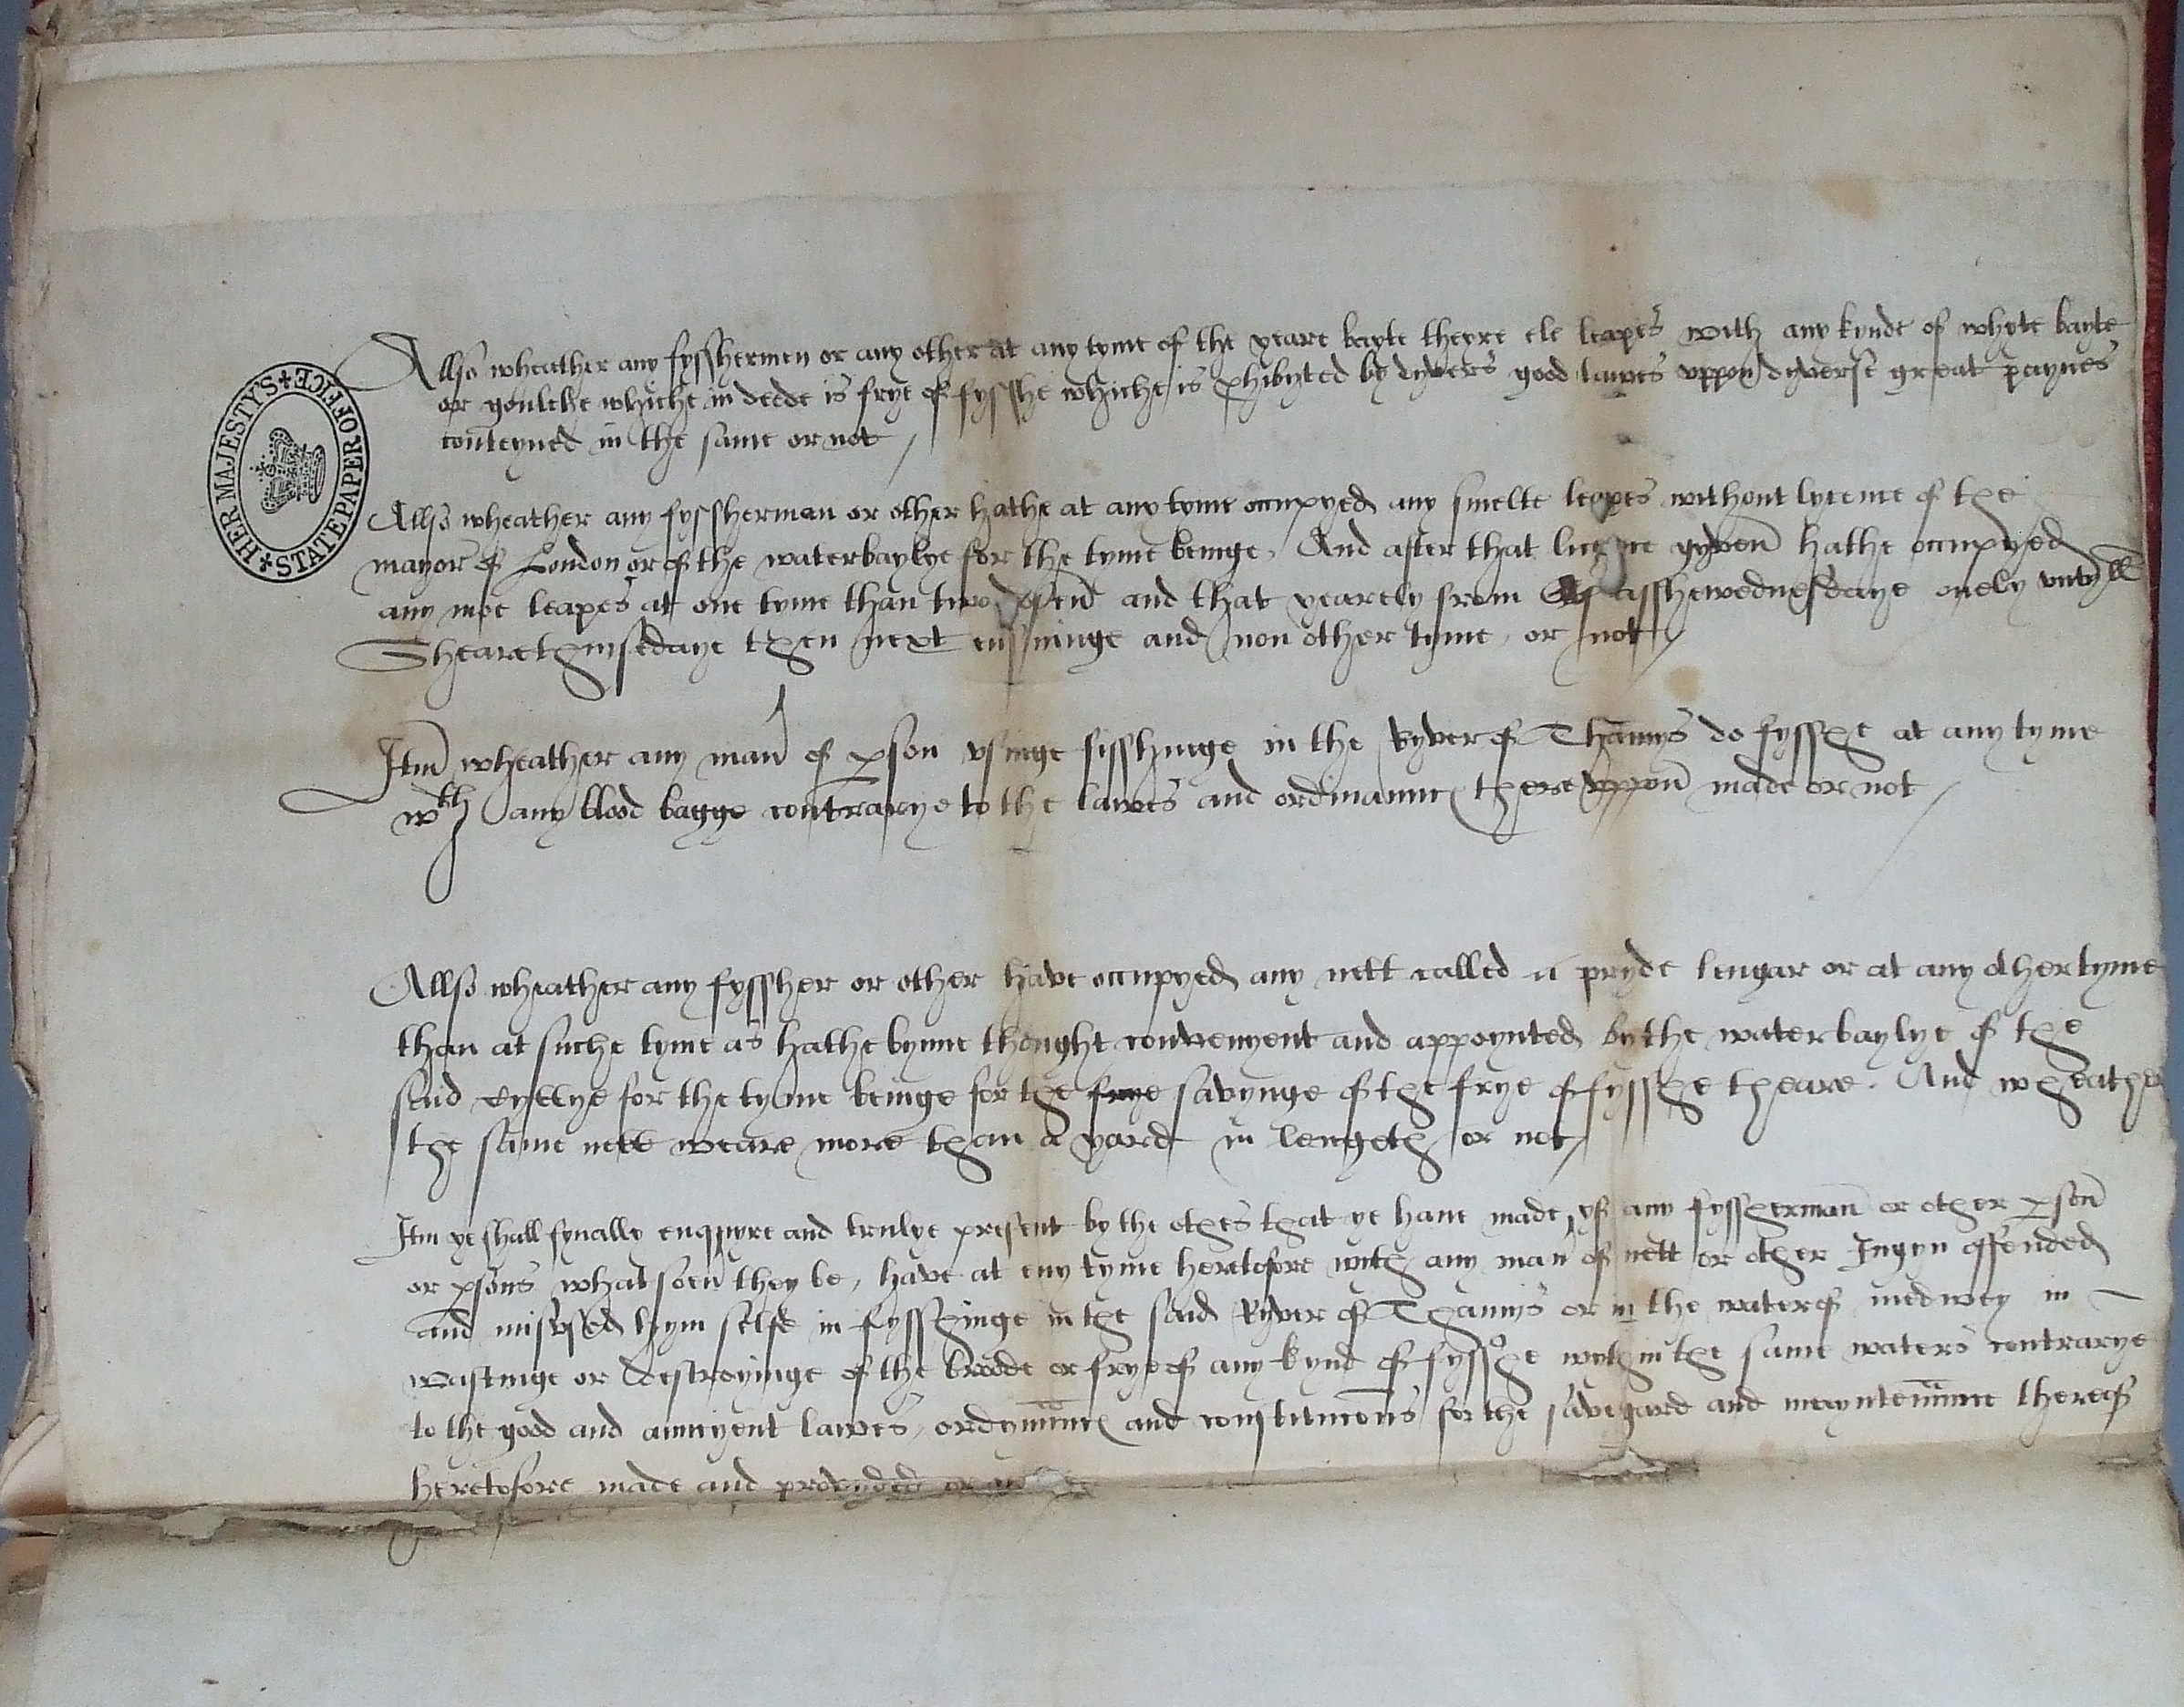 HER MAJESTY'S STATE PAPER OFFICE
Allso wheather any fysshermen or any other at any tyme of the yeare bayte theyre ele leapes with any kynde of whyte bayte
or goulthe whiche in dede is frye of fysshe whiche is phibyted by dyvers good lawes uppon dyverse great paynes
conteyned in the same or not
Allso wheather any fyssherman or other hathe at any tyme occupyed any smelte leapes without lycence of the
mayor of London or of the waterbaylye for the tyme beinge, And after that gyven hathe occupyed
any moe leapes at one tyme than two and that yearely from asshewednesdaye onely untyll
Shearethursedaye then next ensuinge and non other tyme, or not
Itm wheather any man of pson usinge fisshinge in the Ryver of Thamys do fysshe at any tyme
wth any blood bagge contrarye to the lawes and ordinaunce thereuppon made or not
Allso wheather any fyssher or other have occupyed any nett called a pryde lengar or at any other tyme
than at suche tyme as hathe bynne thought convenyent and appoynted by the waterbaylye of the
said cyttye for the tyme beinge for the frye savynge of the frye of fysshe theare. And wheather
the same nett weare more than a yard in lengeth or not
Itm ye shall fynally enquyre and trulye present by the othes that ye have made, yf any fyssherman or other pson
or psons whatsoevr they be, have at eny tyme heretofore with any man of nett or other Ingyn offended
and misused hym selfe in fysshinge in the said Ryver of Thamys or in the water of medwey in
wastinge or destroyinge of the broode or frye of any kynd of fysshe within the same waters contrarye
to the good and auncyent lawes, ordynnce and constitucons for the savegard and mayntennce thereof
heretofore made and provyded or